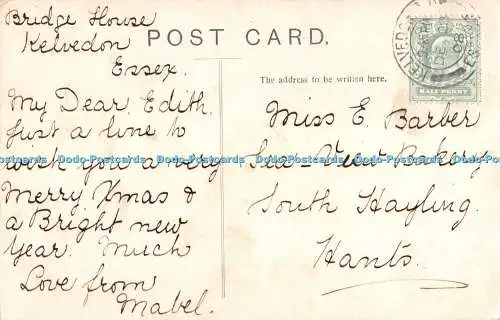 Bridge House
Kelvedon
Essex.
My Dear Edith,
Just a line to
wish you a very
Merry Xmas &
a Bright new
Year. Much
Love from
Mabel.
POST CARD.
The address to be written here.
Miss E. Barber
Sea-View Bakery
South Hayling.
Hants.
HALF PENNY
KELVEDON
Dodo-Postcards Dodo-Postcards Dodo-Postcards Dodo-Postcards Dodo-Postcards